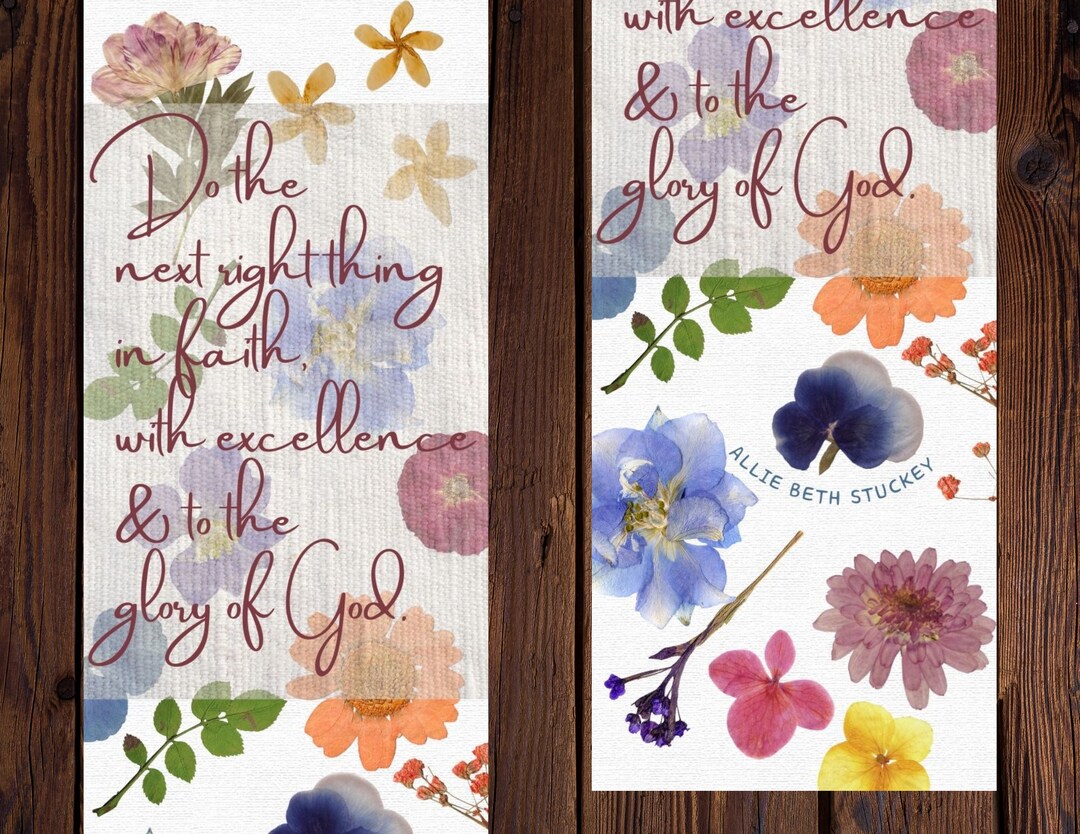 Do the
next right thing
in faith,
with excellence
& to the
glory of God.
with excellence
& to the
glory of God.
ALLIE BETH STUCKEY